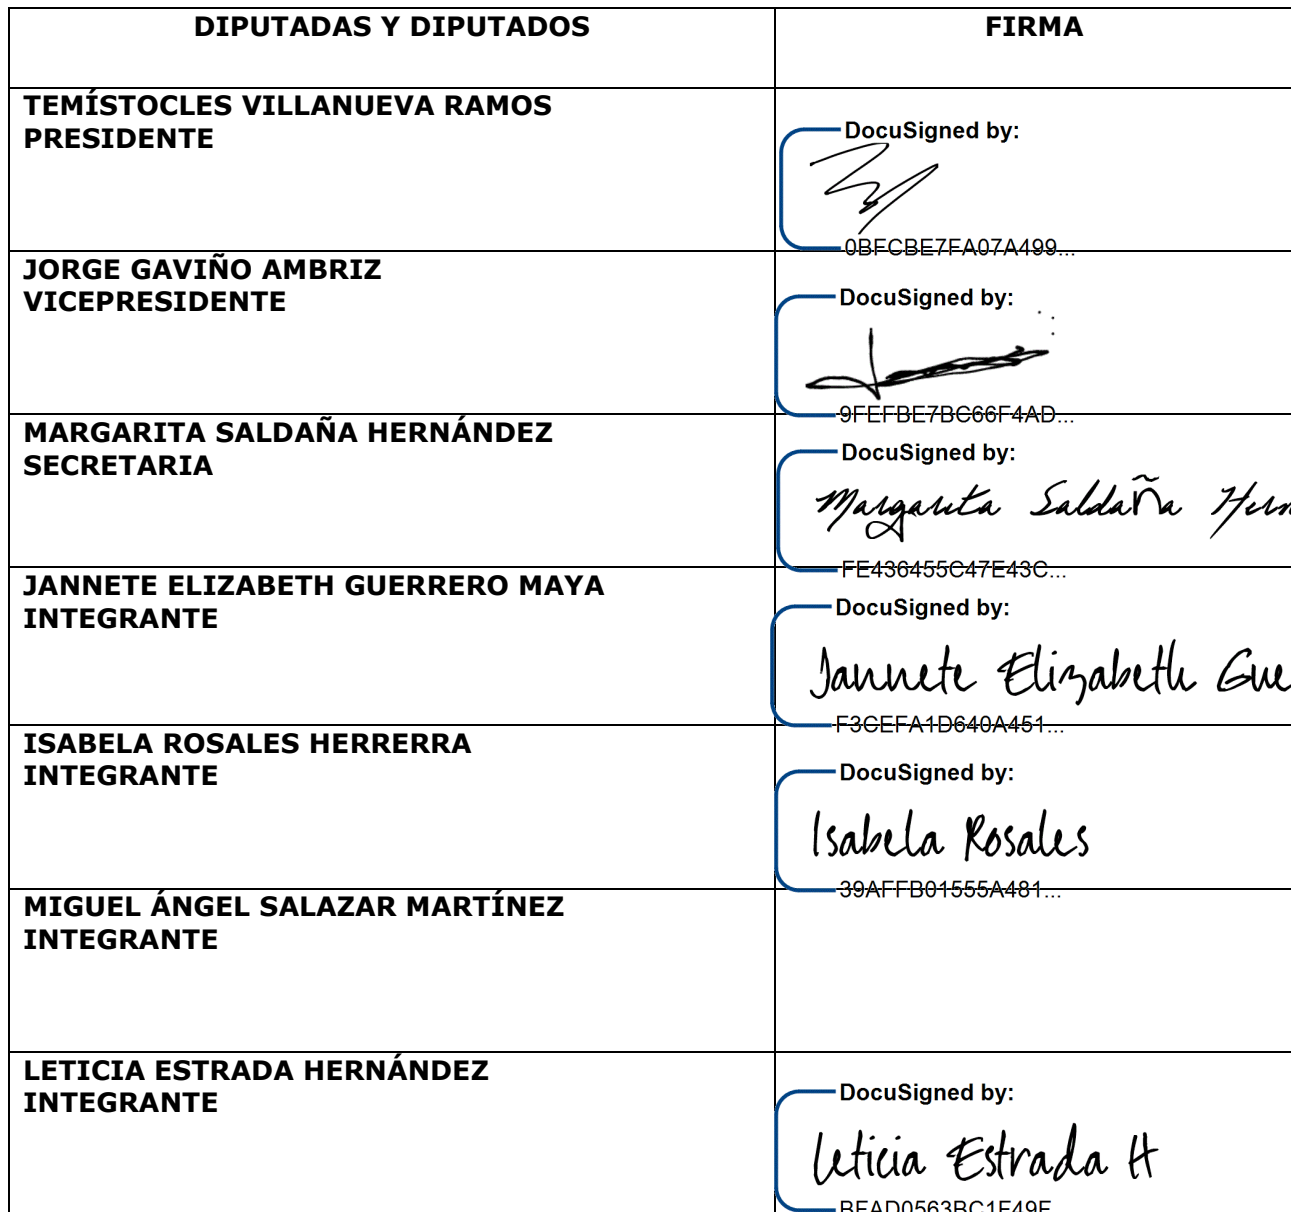 DIPUTADAS Y DIPUTADOS
FIRMA
TEMÍSTOCLES VILLANUEVA RAMOS
PRESIDENTE
DocuSigned by:
0BFCBE7FA07A499...
JORGE GAVIÑO AMBRIZ
VICEPRESIDENTE
DocuSigned by:
9FEFBE7BC66F4AD...
MARGARITA SALDAÑA HERNÁNDEZ
SECRETARIA
DocuSigned by:
Margarita Saldaña Hern
FE436455C47E43C...
JANNETE ELIZABETH GUERRERO MAYA
INTEGRANTE
DocuSigned by:
Jannete Elizabeth Gue
F3CEFA1D640A451...
ISABELA ROSALES HERRERRA
INTEGRANTE
DocuSigned by:
Isabela Rosales
39AFFB01555A481...
MIGUEL ÁNGEL SALAZAR MARTÍNEZ
INTEGRANTE
LETICIA ESTRADA HERNÁNDEZ
INTEGRANTE
DocuSigned by:
Leticia Estrada H